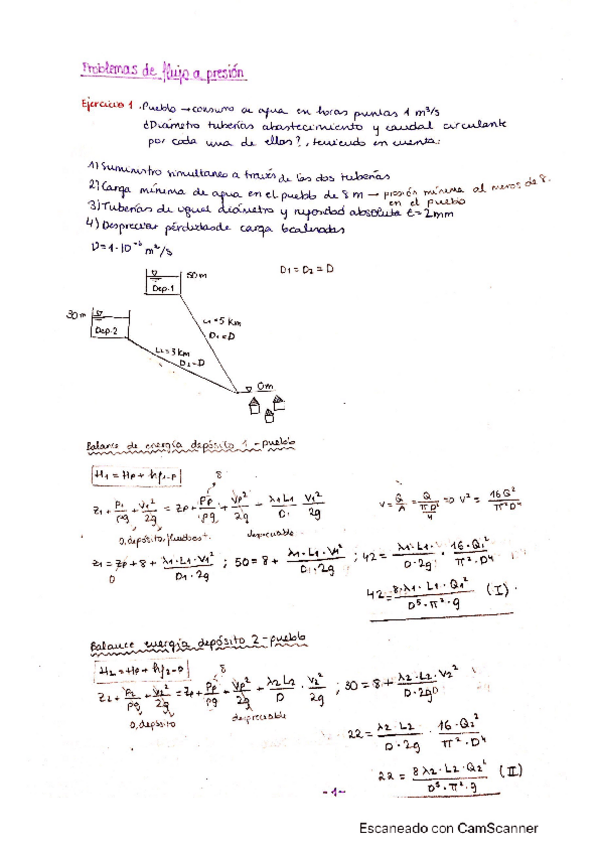 Problemas de flujo a presión
Ejercicio 1. Pueblo → consumo de agua en horas puntas 1 m³/s
¿Diámetro tuberías abastecimiento y caudal circulante
por cada una de ellas?, teniendo en cuenta:
1) Suministro simultaneo a través de las dos tuberías
2) Carga mínima de agua en el pueblo de 8 m → presión mínima al menos de 8.
en el pueblo
3) Tuberías de igual diámetro y rugosidad absoluta ε = 2mm
4) Despreciar pérdidas de carga localizadas
ν = 1·10⁻⁶ m²/s
D1 = D2 = D
50m
Dep.1
30 =
Dep.2
L1 = 5 Km
D1 = D
L2 = 3 km
D2 = D
0m
Balance de energía depósito 1 - pueblo
H1 = Hp + hf1-p
8
z1 + P1/ρg + V1²/2g = zp + Pp/ρg + Vp²/2g - λ1L1/D · V1²/2g
V = Q/A = Q/(πD²/4) => V² = 16Q²/π²D⁴
despreciable
z1 = zp + 8 + λ1·L1·V1²/D1·2g ; 50 = 8 + λ1·L1·V1²/D1·2g ; 42 = λ1·L1/D·2g · 16·Q1²/π²·D⁴
0
42 = 8·λ1·L1·Q1²/D⁵·π²·g (I)
Balance energía depósito 2 - pueblo
H2 = Hp + hf2-p
8
z2 + P2/ρg + V2²/2g = zp + Pp/ρg + Vp²/2g + λ2L2/D · V2²/2g ; 30 = 8 + λ2·L2·V2²/D·2g
0, depósito
despreciable
22 = λ2·L2/D·2g · 16·Q2²/π²·D⁴
22 = 8λ2·L2·Q2²/D⁵·π²·g (II)
-1-
Escaneado con CamScanner